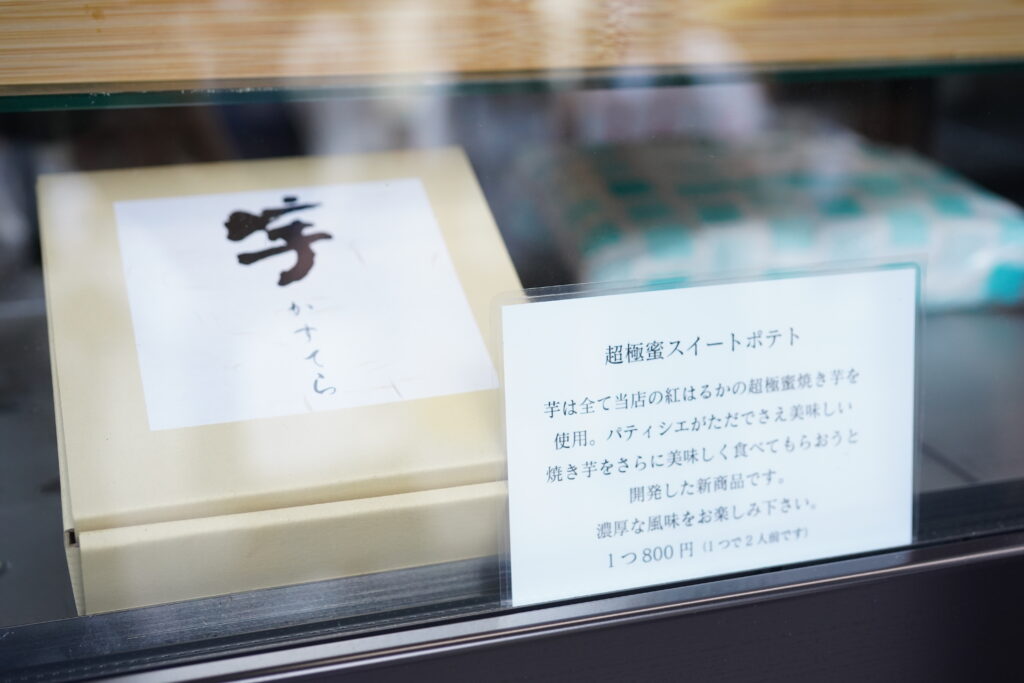 芋
かすてら
超極蜜スイートポテト
芋は全て当店の紅はるかの超極蜜焼き芋を
使用。パティシエがただでさえ美味しい
焼き芋をさらに美味しく食べてもらおうと
開発した新商品です。
濃厚な風味をお楽しみ下さい。
1つ800円（1つで2人前です）